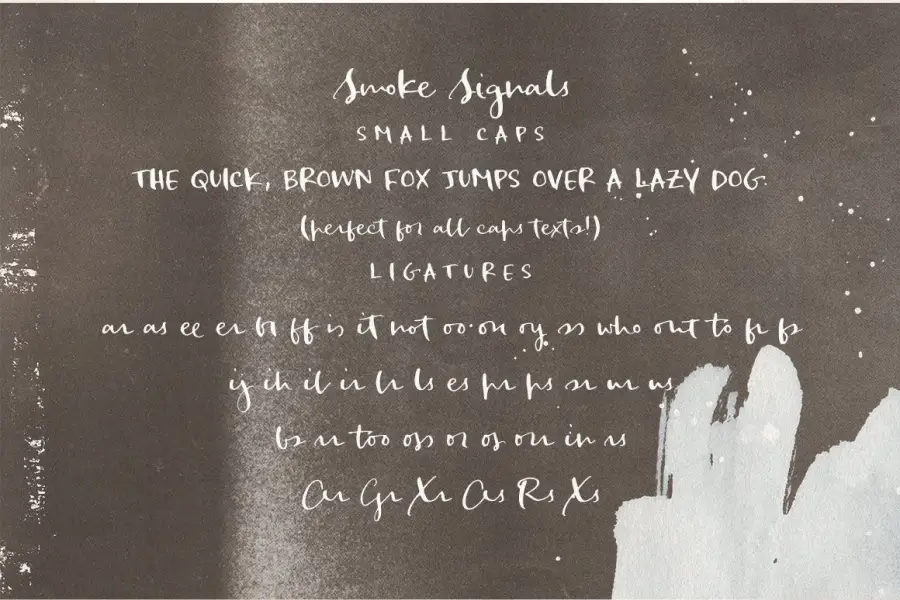 Smoke Signals
SMALL CAPS
THE QUICK, BROWN FOX JUMPS OVER A LAZY DOG.
(perfect for all caps texts!)
LIGATURES
ar as ee er br ff is it not oo on oy ss who out to fr fs
ij ih il ir lr ls es pr ps sr ur us
bs rr too ops or os our in rs
Cr Gr Xr Cs Rs Xs